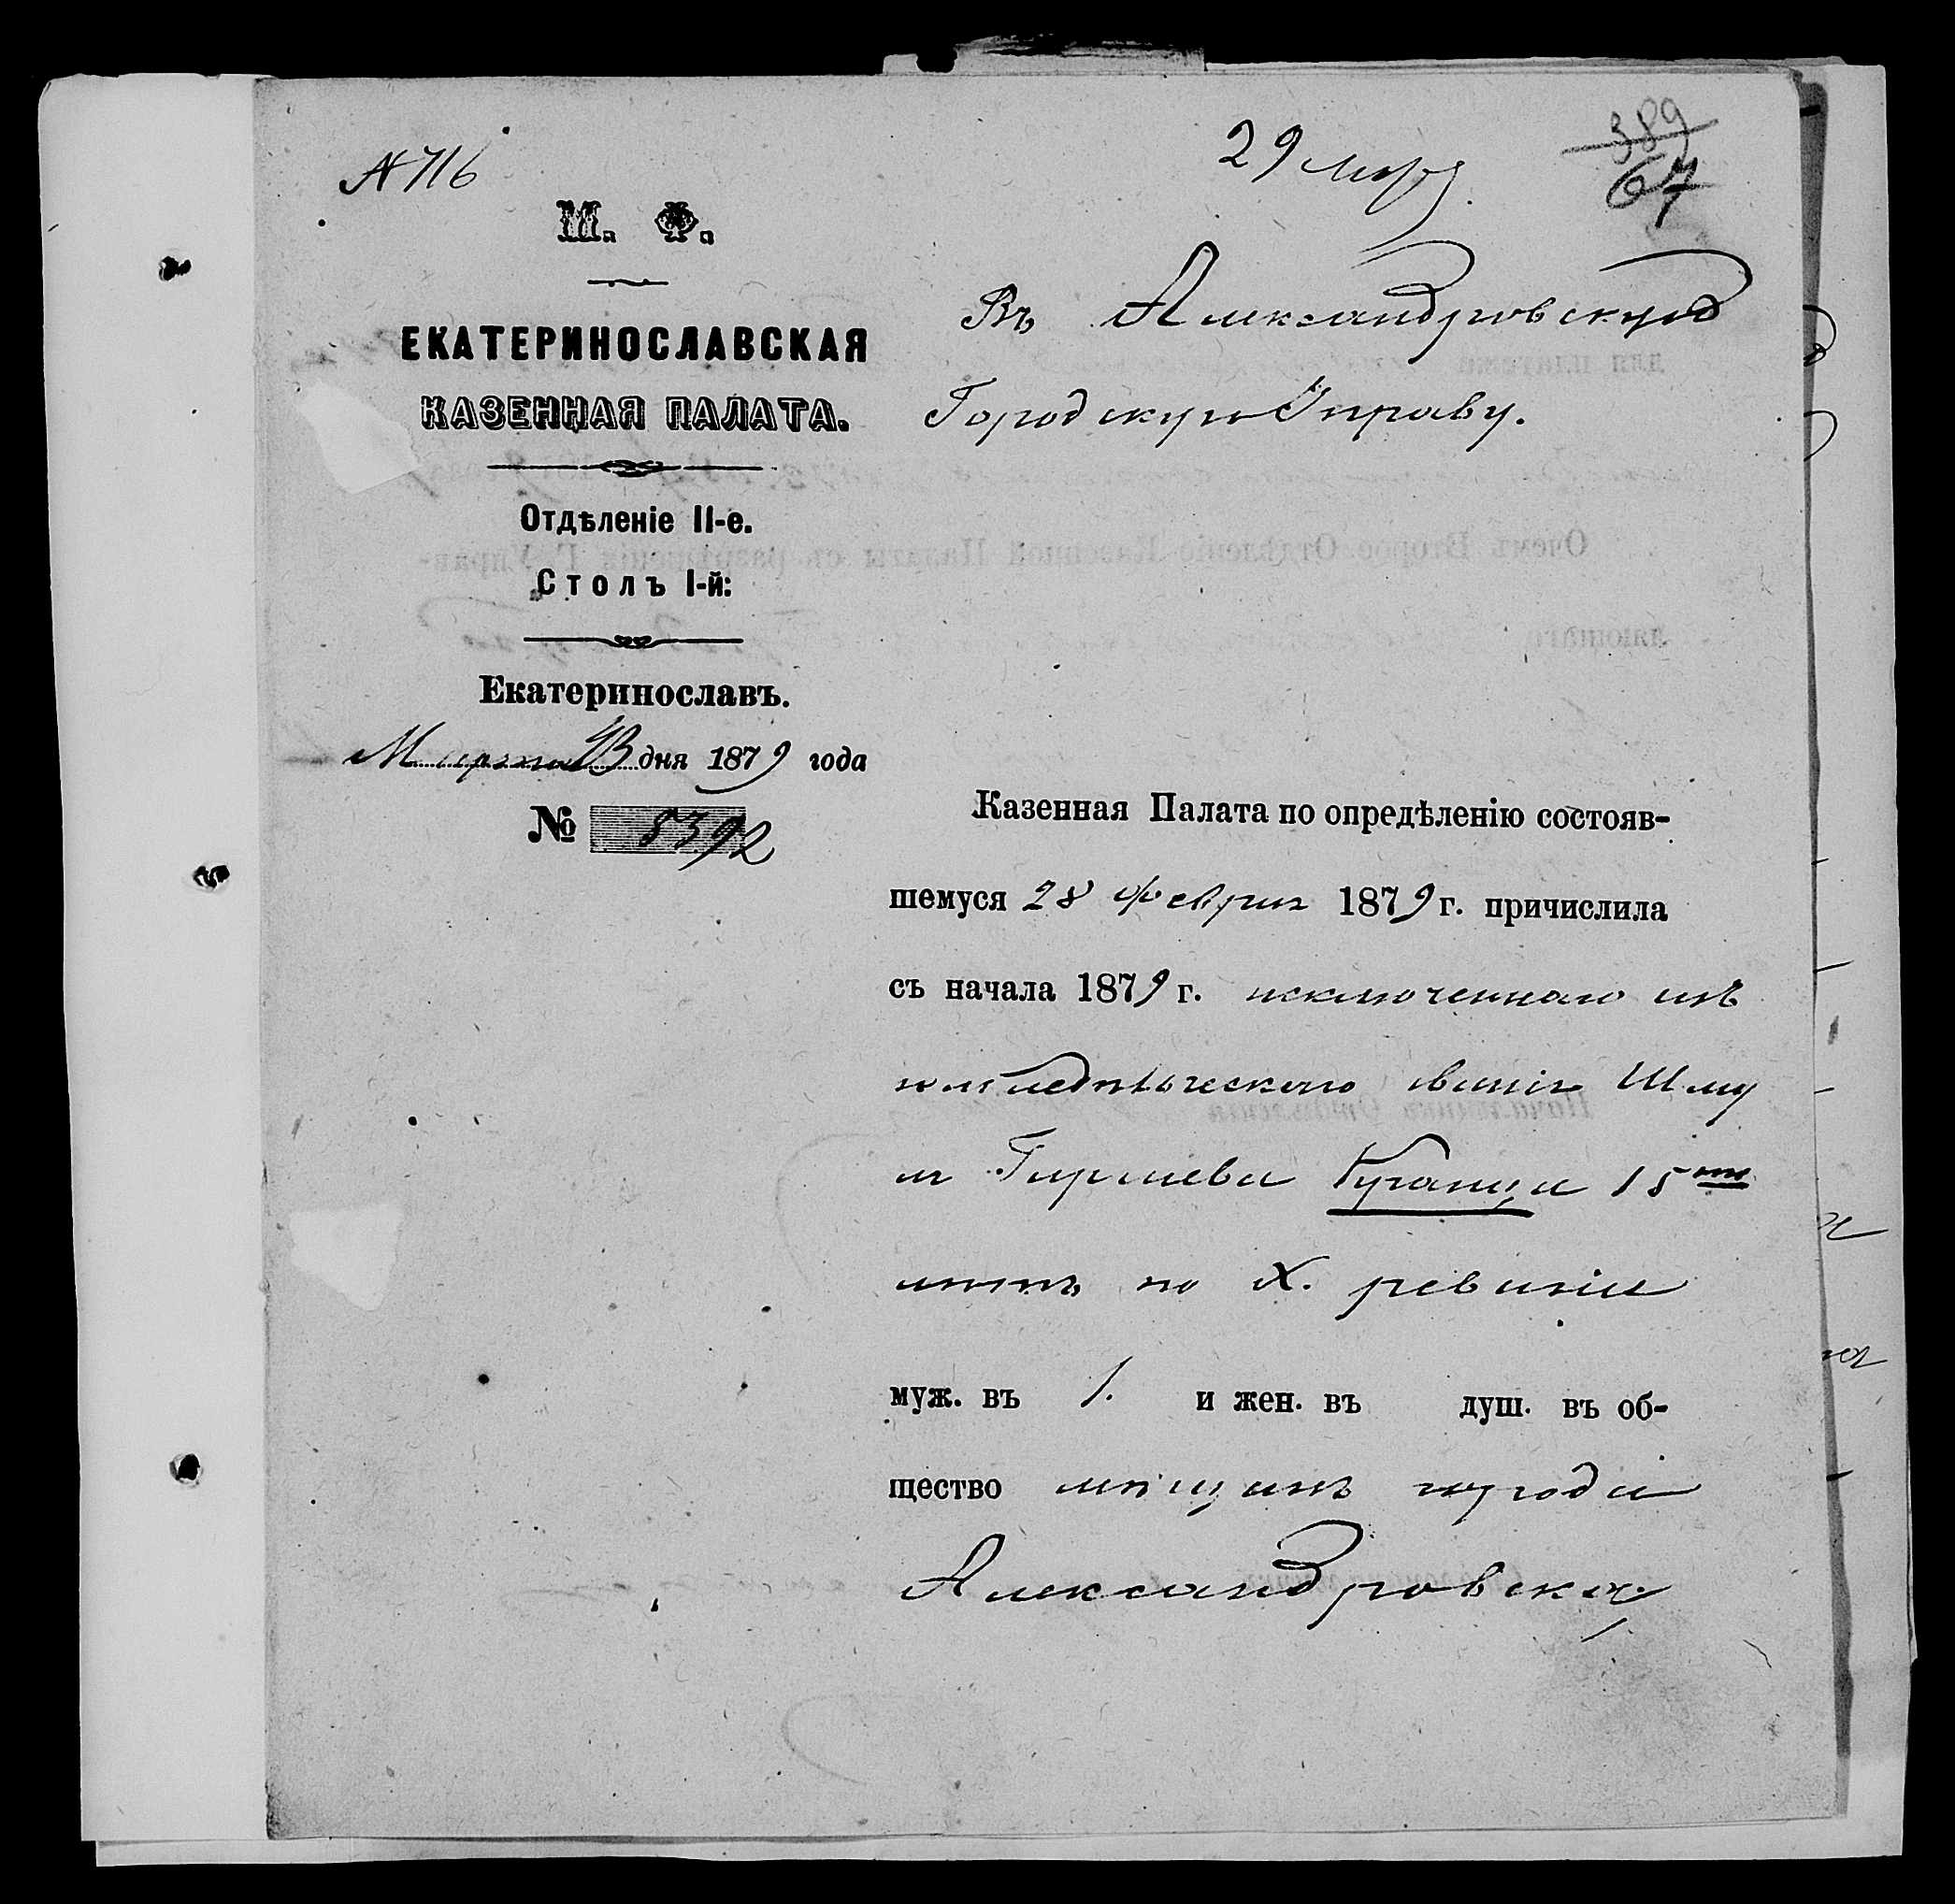 № 716
29 мар
389
67
М. Ф.
ЕКАТЕРИНОСЛАВСКАЯ
КАЗЕННАЯ ПАЛАТА.
Отдѣленіе II-е.
Столъ I-й:
Екатеринославъ.
Марта 13 дня 1879 года
№ 8392
Въ Александровскую
Городскую Управу.
Казенная Палата по опредѣленію состояв-
шемуся 28 Февраля 1879 г. причислила
съ начала 1879 г. исключеннаго изъ
земледѣльческаго званія Шму
ля Гиршева 15ти
лѣтъ по X. ревизіи
муж. въ 1. и жен. въ душ. въ об-
щество мѣщанъ города
Александровска